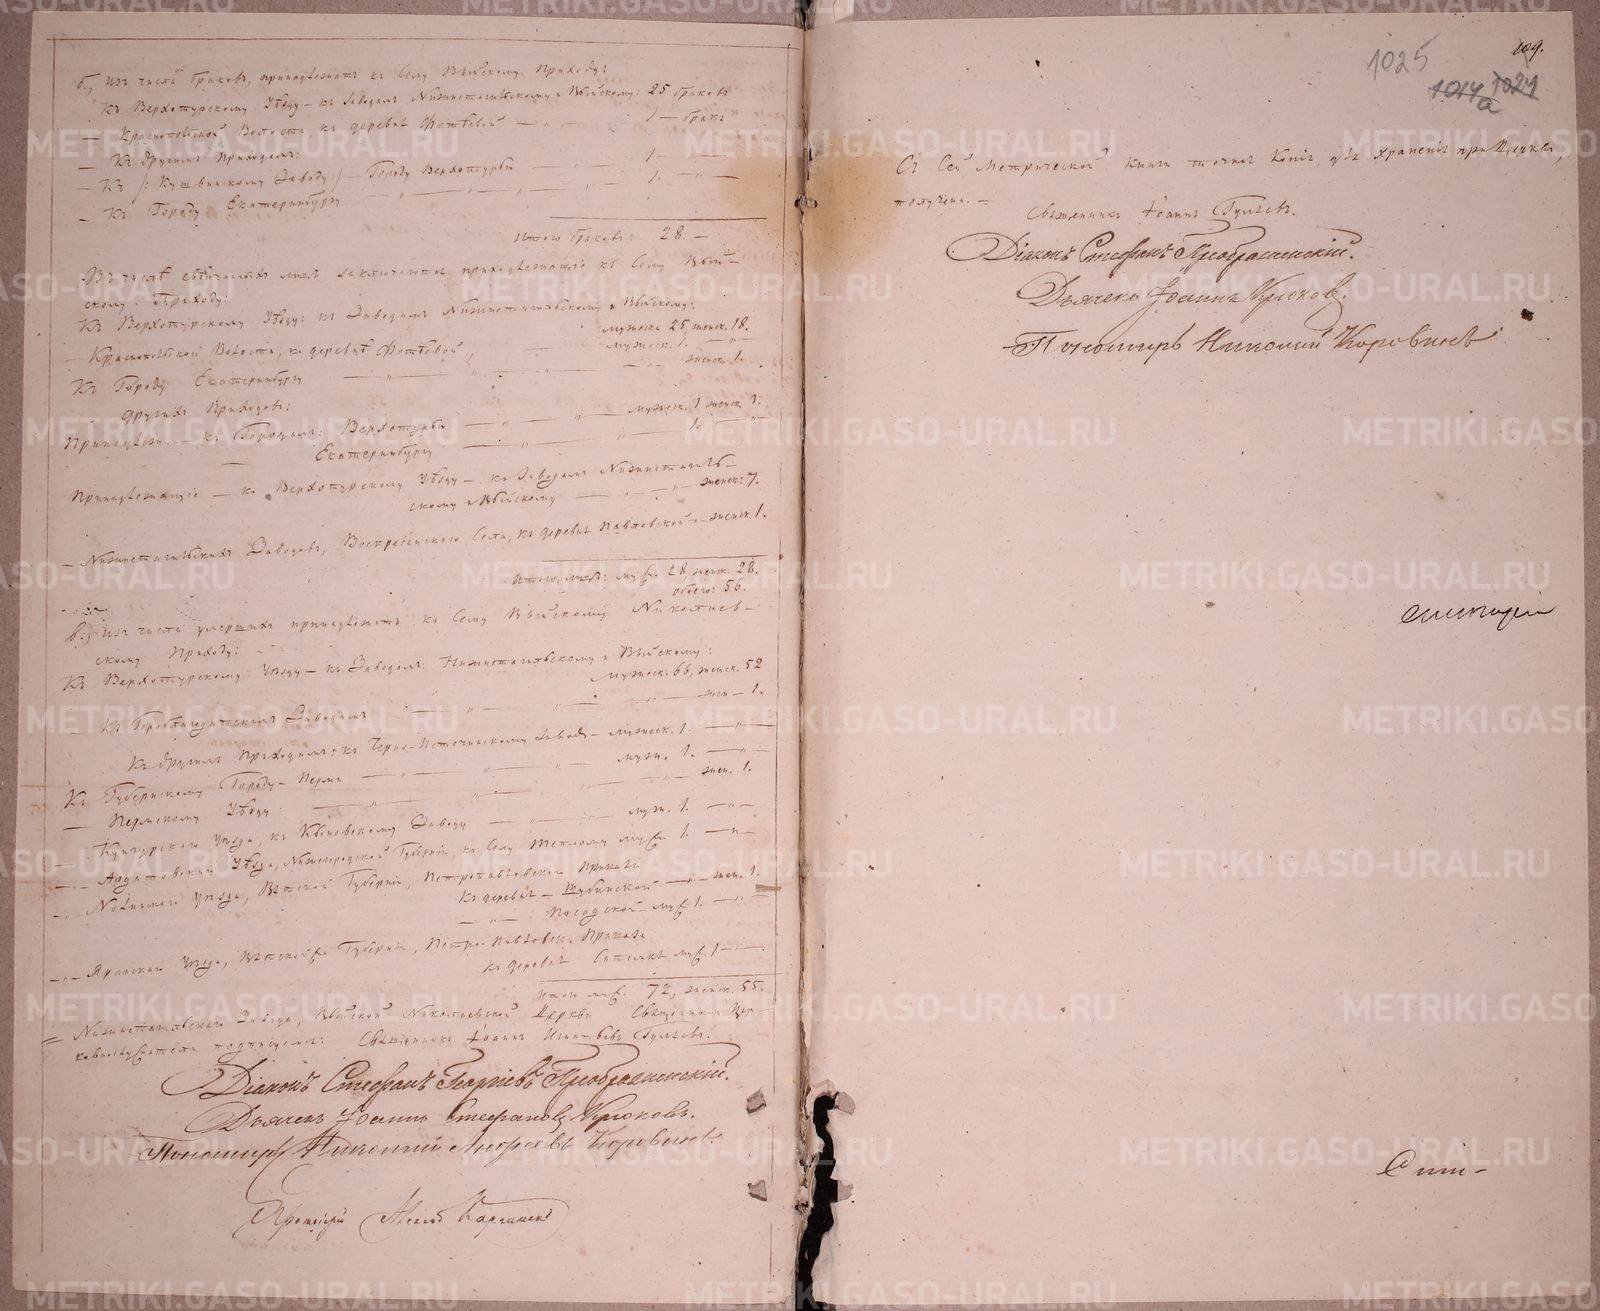 б., Изъ числа браковъ, принадлежатъ къ Селу Выйскому Приходу:
Къ Верхотурскому Уѣзду – къ Заводамъ Нижнетагильскому и Выйскому: 25 браковъ
— Краснопольской Волости, къ деревнѣ 1 — бракъ
— Къ другимъ Приходамъ:
— Къ /: Кушвинскому Заводу :/ — Городу Верхотурью 1 —
— Къ Городу Екатеринбургу 1. — „ —
Итого браковъ: 28. —
Въ числѣ лицъ заключаются, принадлежащіе къ Селу Вый-
скому Приходу:
Къ Верхотурскому Уѣзду: къ Заводамъ Нижнетагильскому и Выйскому:
мужеск. 25, женск. 18.
— Краснопольской Волости, къ деревнѣ мужеск. 1. — „ —
Къ Городу Екатеринбургу — „ — женск. 1.
другихъ Приходовъ:
Принадлеж. — къ Городамъ: Верхотурью — „ — мужеск. 1 женск. 1.
Екатеринбургу — „ — 1. — „ —
Принадлежащіе — къ Верхотурскому Уѣзду — къ Заводамъ Нижнетагиль-
скому и Выйскому — „ — женск. 7.
— Нижнетагильскихъ Заводовъ, Воскресенскаго Села, къ деревнѣ Павловской — женск. 1.
Итого лицъ: муж. 28, женск. 28.
обоего: 56.
в., Изъ числа умершихъ принадлежатъ къ Селу Выйскому Николаев-
скому Приходу:
Къ Верхотурскому Уѣзду — къ Заводамъ: Нижнетагильскому и Выйскому:
Мужеск. 66, женск. 52
— Къ Гороблагодатскимъ Заводамъ — „ — жен. — 1.
Къ другимъ Приходамъ: къ Черно-Источинскому Заводу — мужеск. 1. — „ —
Къ Губернскому Городу — Перми — „ — муж. 1. — „ —
— Пермскому Уѣзду — „ — жен. 1.
— Кунгурскаго Уѣзда, къ Кыновскому Заводу — „ — муж. 1. — „ —
— Ардатовскаго Уѣзда, Нижегородской Губерніи, къ Селу муж. 1. — „ —
— „ — Нолинскаго Уѣзда, Вятской Губерніи, Петропавловскаго Приказа
Къ деревнѣ — Шубинской — „ — жен. 1.
— „ — Посадской — муж. 1. — „ —
— „ — Яранскаго Уѣзда, Вятской Губерніи, Петро-Павловск. Приказа
къ деревнѣ муж. 1 —
Итого муж. 72, женск. 55.
= Нижнетагильскаго Завода, Выйской Николаевской Церкви Священно и Цер-
ковнослужители подписуемся: Священникъ Іоаннъ Игнатьевъ
Діаконъ Стефанъ Георгіевъ Преображенскій.
Дьячекъ Іоаннъ Стефановъ Крюковъ.
Пономарь Николай Андреевъ Коровинъ.
Протоіерей
109.
1025
1014а 1024
Съ Сей Метрической Книги точная Копія, для храненія при Церкви,
получена. —
Священникъ Іоаннъ
Діаконъ Стефанъ Преображенскій.
Дьячекъ Іоаннъ Крюковъ.
Пономарь Николай Коровинъ
METRIKI.GASO-URAL.RU